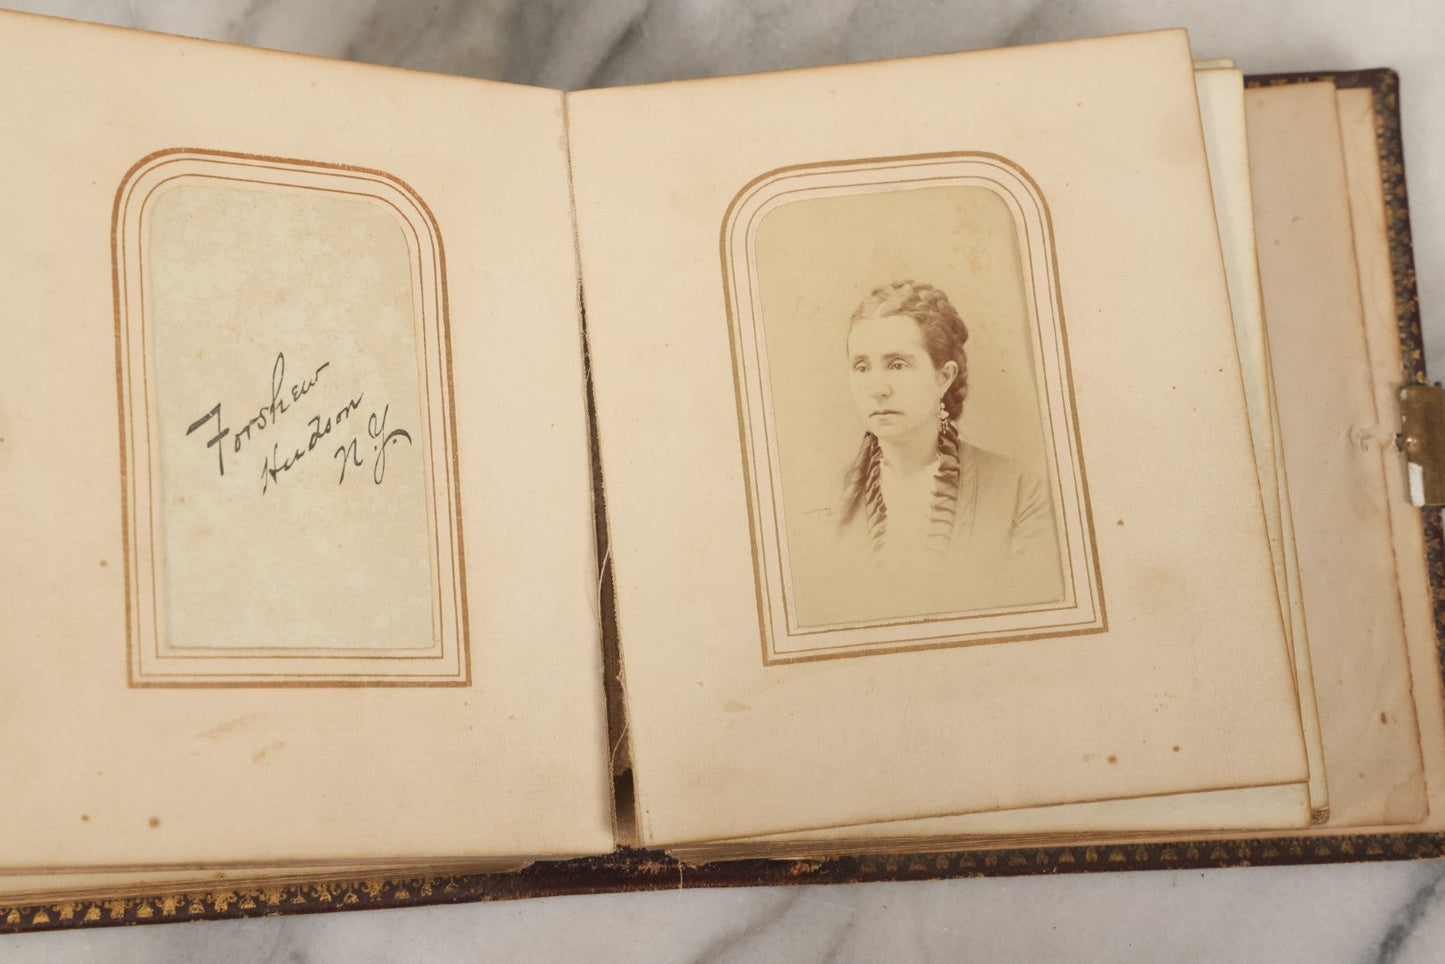 Forshew
Hudson
N.Y.